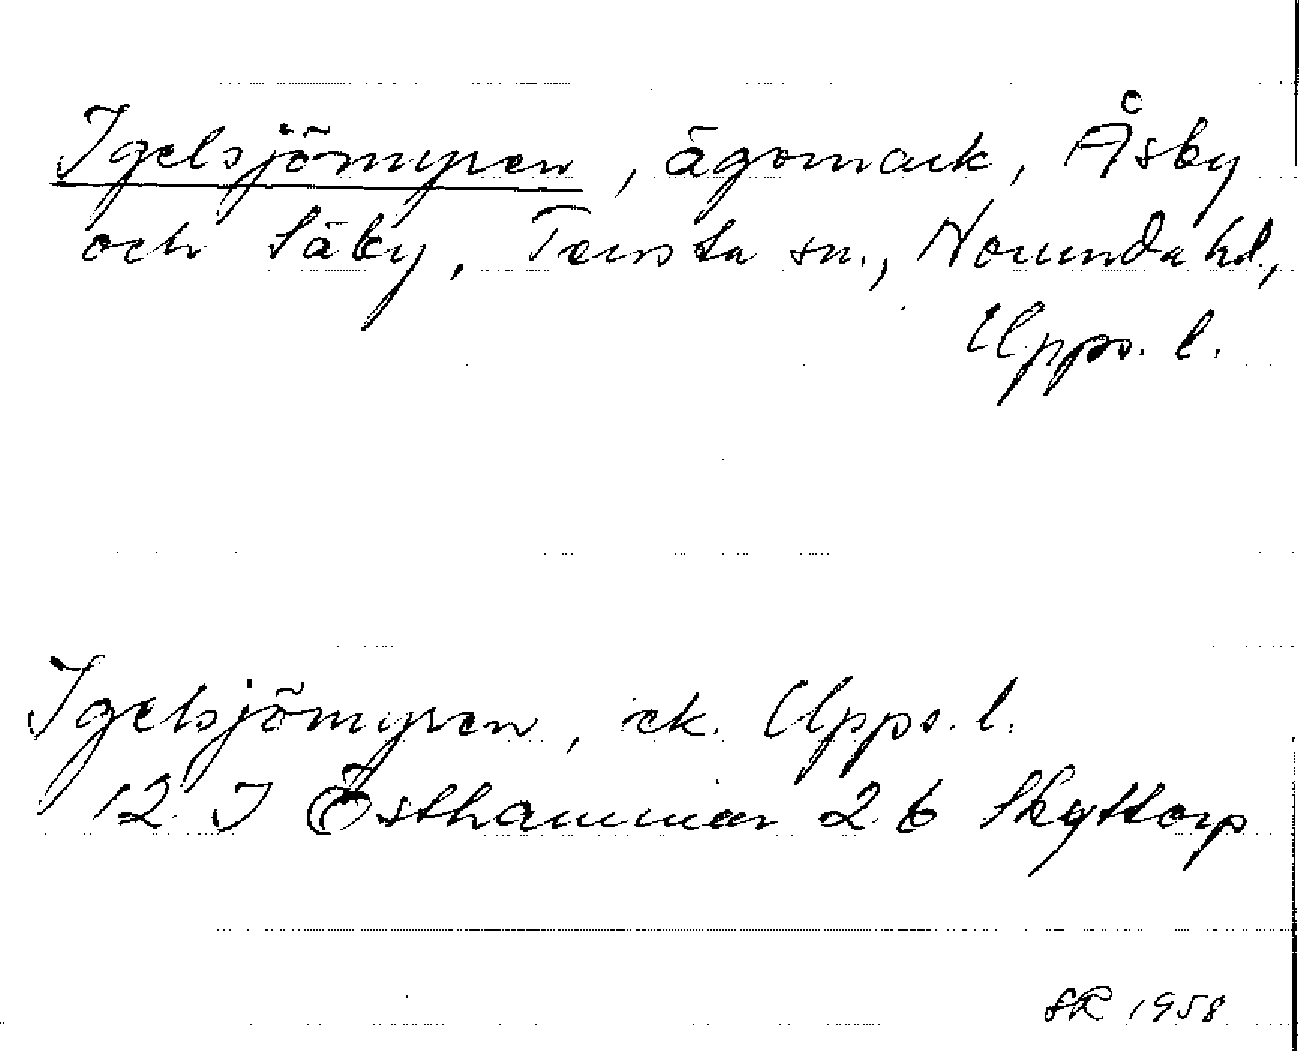 Igelsjömyren, ägomark, Åsby
och Säby, Tensta sn., Norunda hd.,
Upps. l.
Igelsjömyren, ek. Upps. l.
12 I Östhammar 2 b Skyttorp
SR 1958